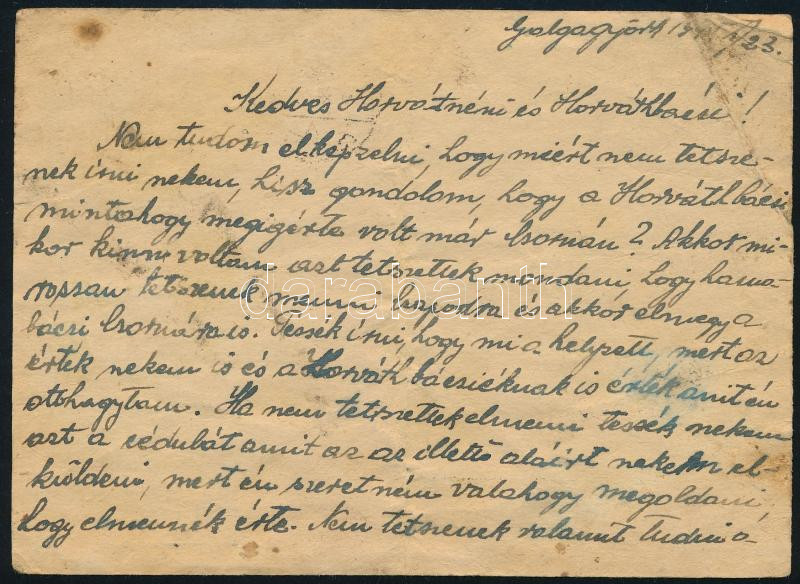 Galgagyörk 19 /23.
Kedves Horvátnéni és Horváthbácsi!
Nem tudom elképzelni, hogy miért nem tetsze-
nek írni nekem, hisz gondolom, hogy a Horváthbácsi
mintahogy megigérte volt már Csornán? Akkor mi-
kor kinn voltam azt tetszettek mondani, hogy hama-
rossan tetszenek menni Csapodra és akkor elmegy a
bácsi Csornára is. Tessék írni, hogy mi a helyzett, mert az
érték nekem is és a Horváth bácsiéknak is érték amit én
otthagytam. Ha nem tetszettek elmenni tessék nekem
azt a cédulát amit az az illető aláírt nekem el-
küldeni, mert én szeretném valahogy megoldani,
hogy elmennék érte. Nem tetszenek valamit tudni a-
darabanth